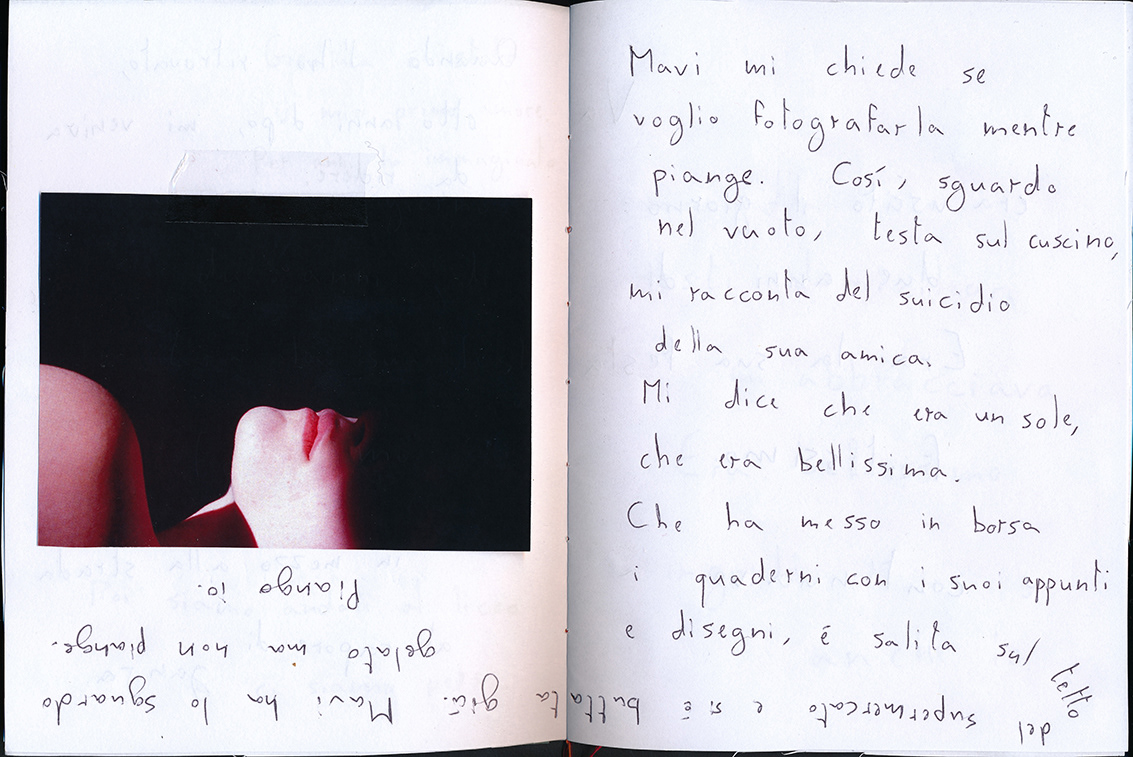 Mavi mi chiede se
voglio fotografarla mentre
piange. Così, sguardo
nel vuoto, testa sul cuscino,
mi racconta del suicidio
della sua amica.
Mi dice che era un sole,
che era bellissima.
Che ha messo in borsa
i quaderni con i suoi appunti
e disegni, é salita sul tetto
del supermercato e si é buttata
giú. Mavi ha lo sguardo
gelato ma non piange.
Piango io.